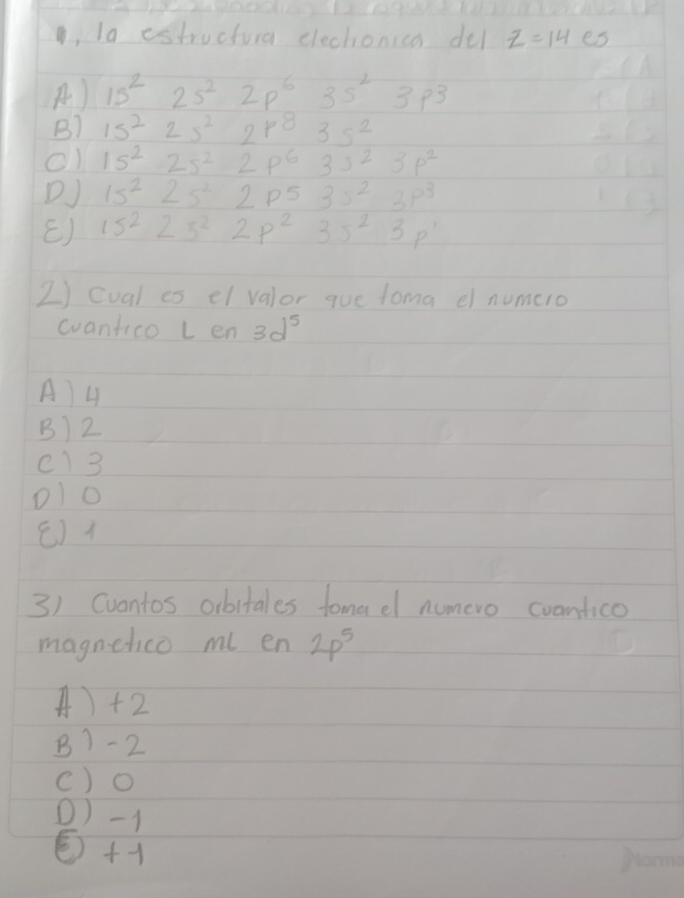 1, la estructura electronica del Z=14 es
A) 1s² 2s² 2p⁶ 3s² 3p3
B) 1s² 2s² 2p⁸ 3s²
C) 1s² 2s² 2p⁶ 3s² 3p²
D) 1s² 2s² 2p5 3s² 3p³
E) 1s² 2s² 2p² 3s² 3p¹
2) Cual es el valor que toma el numero
cuantico L en 3d⁵
A) 4
B) 2
C) 3
D) 0
E) 1
3) Cuantos orbitales toma el numero cuantico
magnetico ml en 2p⁵
A) +2
B) -2
C) 0
D) -1
E) +1
Norma